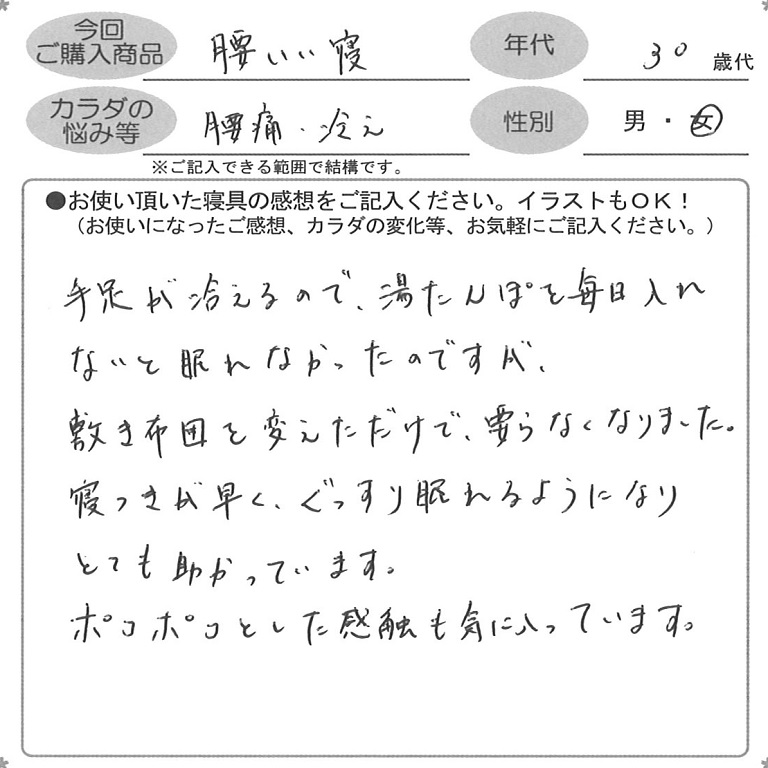 今回
ご購入商品 腰いい寝 年代 30 歳代
カラダの
悩み等 腰痛・冷え 性別 男・女
※ご記入できる範囲で結構です。
●お使い頂いた寝具の感想をご記入ください。イラストもOK!
（お使いになったご感想、カラダの変化等、お気軽にご記入ください。）
手足が冷えるので、湯たんぽを毎日入れ
ないと眠れなかったのですが、
敷き布団を変えただけで、要らなくなりました。
寝つきが早く、ぐっすり眠れるようになり
とても助かっています。
ポコポコとした感触も気に入っています。